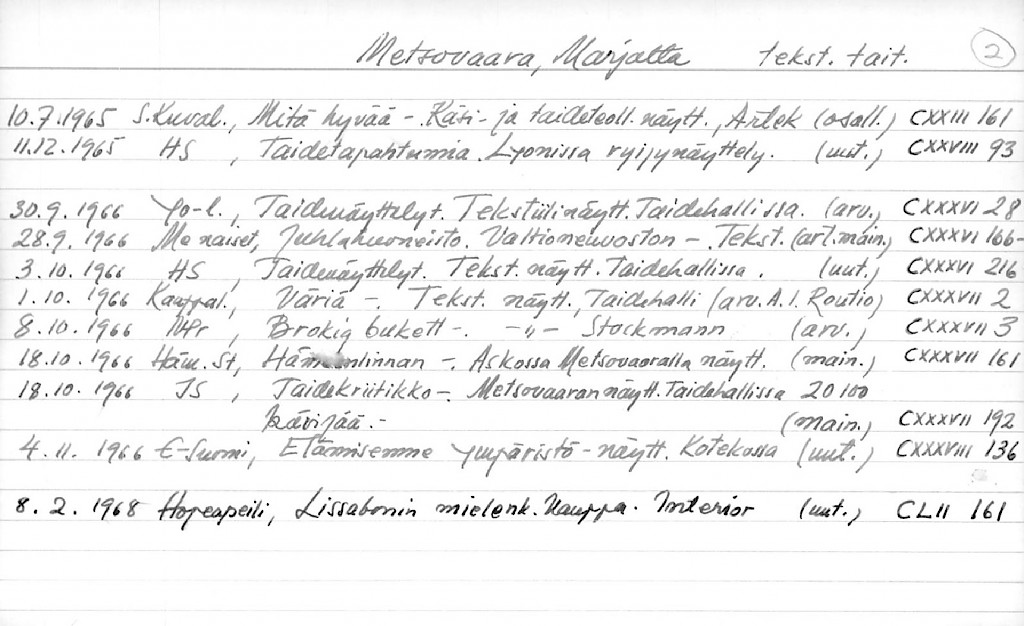 Metsovaara, Marjatta tekst. tait. 2
10.7.1965 S.Kuval., Mitä hyvää -. Käsi- ja taideteoll. näytt., Artek (osall.) CXXIII 161
11.12.1965 HS, Taidetapahtumia. Lyonissa ryijynäyttely. (uut.) CXXVIII 93
30.9.1966 Yo-l., Taidenäyttelyt. Tekstiilinäytt. Taidehallissa. (arv.) CXXXVI 28
28.9.1966 Me naiset, Juhlahuoneisto. Valtioneuvoston -. Tekst. (art. main.) CXXXVI 166-
3.10.1966 HS, Taidenäyttelyt. Tekst. näytt. Taidehallissa. (uut.) CXXXVI 216
1.10.1966 Kauppal., Väriä -. Tekst. näytt., Taidehalli (arv. A.I. Routio) CXXXVII 2
8.10.1966 NPr, Brokig bukett -. -"- Stockmann (arv.) CXXXVII 3
18.10.1966 Häm. St, Hämeenlinnan -. Askossa Metsovaaralla näytt. (main.) CXXXVII 161
18.10.1966 IS, Taidekriitikko -. Metsovaaran näytt. Taidehallissa 20100
kävijää.- (main.) CXXXVII 192
4.11.1966 E-Suomi, Elämisemme ympäristö - näytt. Kotekossa (uut.) CXXXVIII 136
8.2.1968 Hopeapeili, Lissabonin mielenk. kauppa. Interiör (uut.) CLII 161